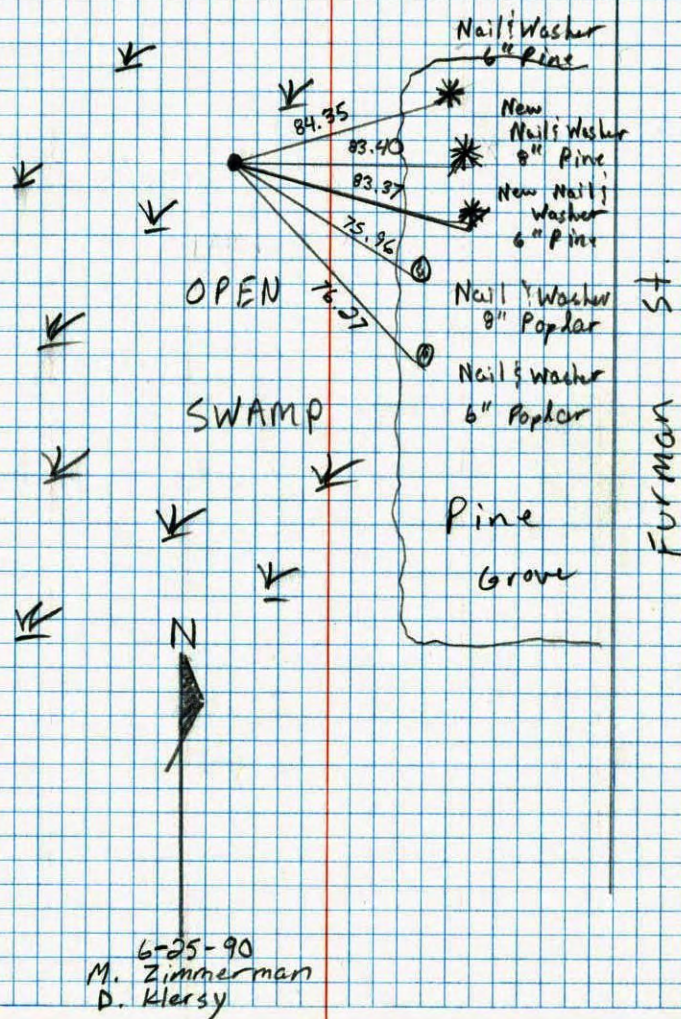 Nail & Washer
6" Pine
84.35
New
Nail & Washer
8" Pine
83.40
83.37
New Nail &
Washer
6" Pine
75.96
OPEN
76.27
Nail & Washer
8" Poplar
Nail & Washer
6" Poplar
SWAMP
Furman St.
Pine
Grove
N
6-25-90
M. Zimmerman
D. Klersy